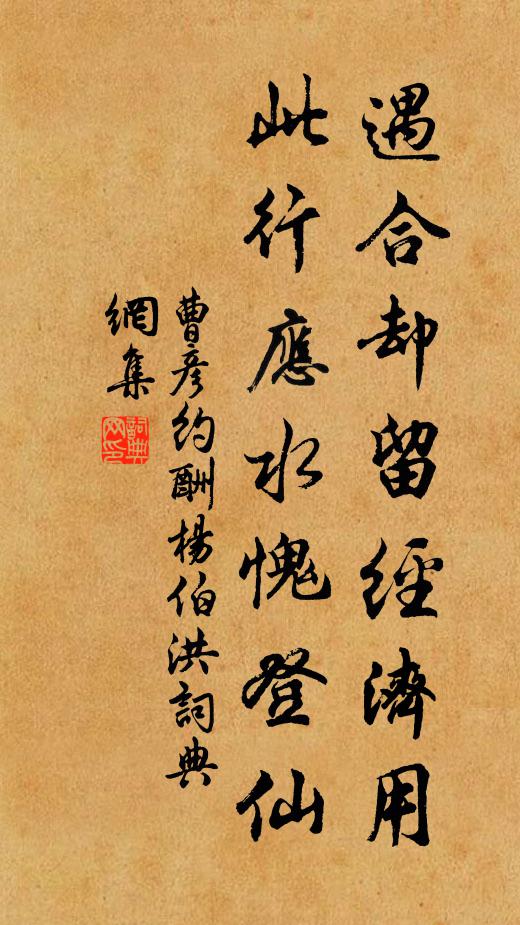 遇合却留經濟用
此行應水愧登仙
曹彦約酬楊伯洪詞典
網集
詞典網印